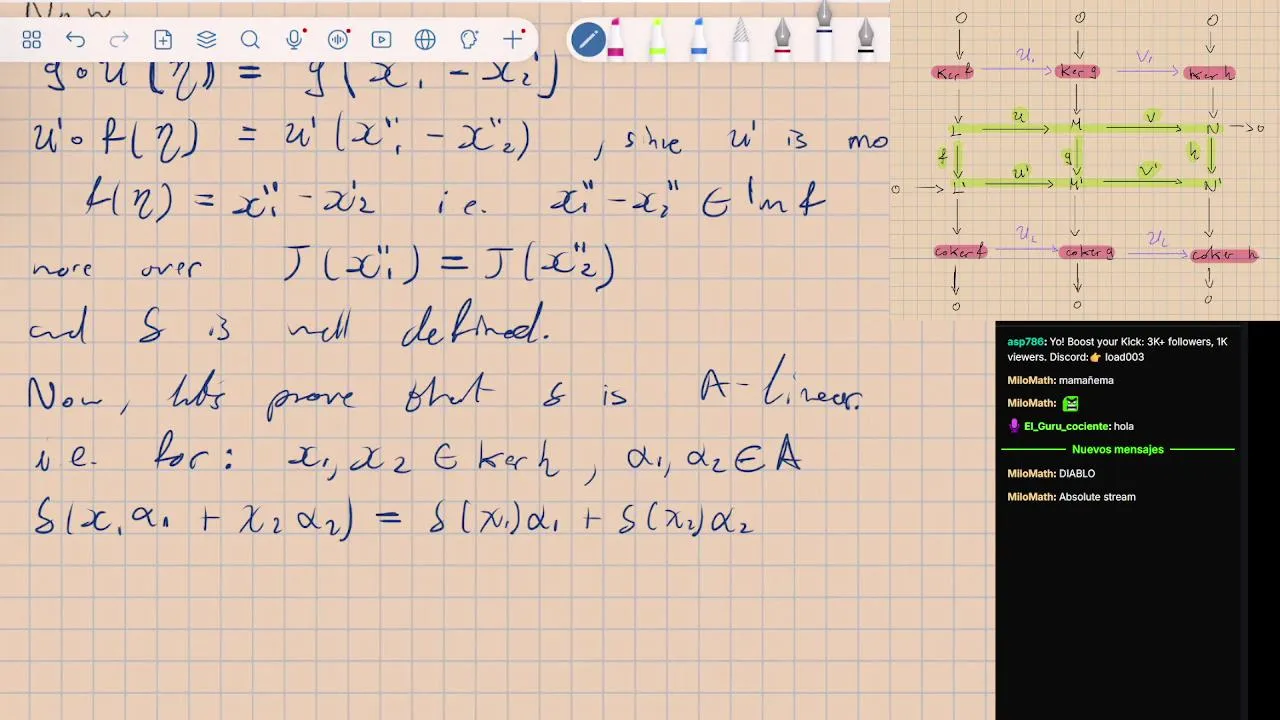 Now
g∘u(η) = g(x'₁ - x'₂)
u'∘f(η) = u'(x''₁ - x''₂) , since u' is mo
f(η) = x''₁ - x''₂ i.e. x''₁ - x''₂ ∈ Im f
more over J(x''₁) = J(x''₂)
and δ is well defined.
Now, let's prove that δ is A-linear.
i.e. for: x₁, x₂ ∈ ker h , α₁, α₂ ∈ A
δ(x₁α₁ + x₂α₂) = δ(x₁)α₁ + δ(x₂)α₂
0 0 0
ker f u₁ ker g v₁ ker h
L u M v N → 0
f g h
0 → L' u' M' v' N'
coker f u₂ coker g v₂ coker h
0 0 0
asp786: Yo! Boost your Kick: 3K+ followers, 1K
viewers. Discord:👉 load003
MiloMath: mamañema
MiloMath:
El_Guru_cociente: hola
Nuevos mensajes
MiloMath: DIABLO
MiloMath: Absolute stream